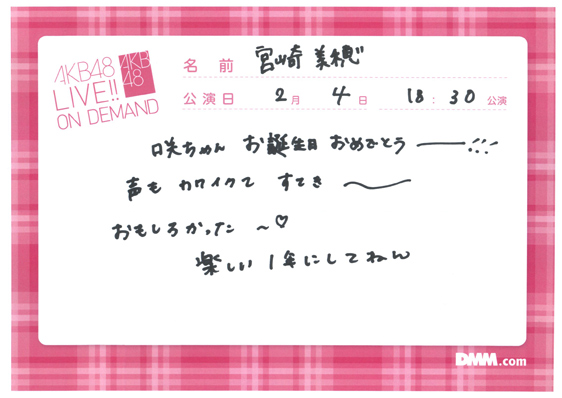 AKB48
LIVE!!
ON DEMAND
AKB
48
名前 宮崎美穂
公演日 2月 4日 18:30公演
咲ちゃん お誕生日 おめでとうー!!!
声も カワイクて すてき〜
おもしろかった〜♡
楽しい1年にしてねん
DMM.com